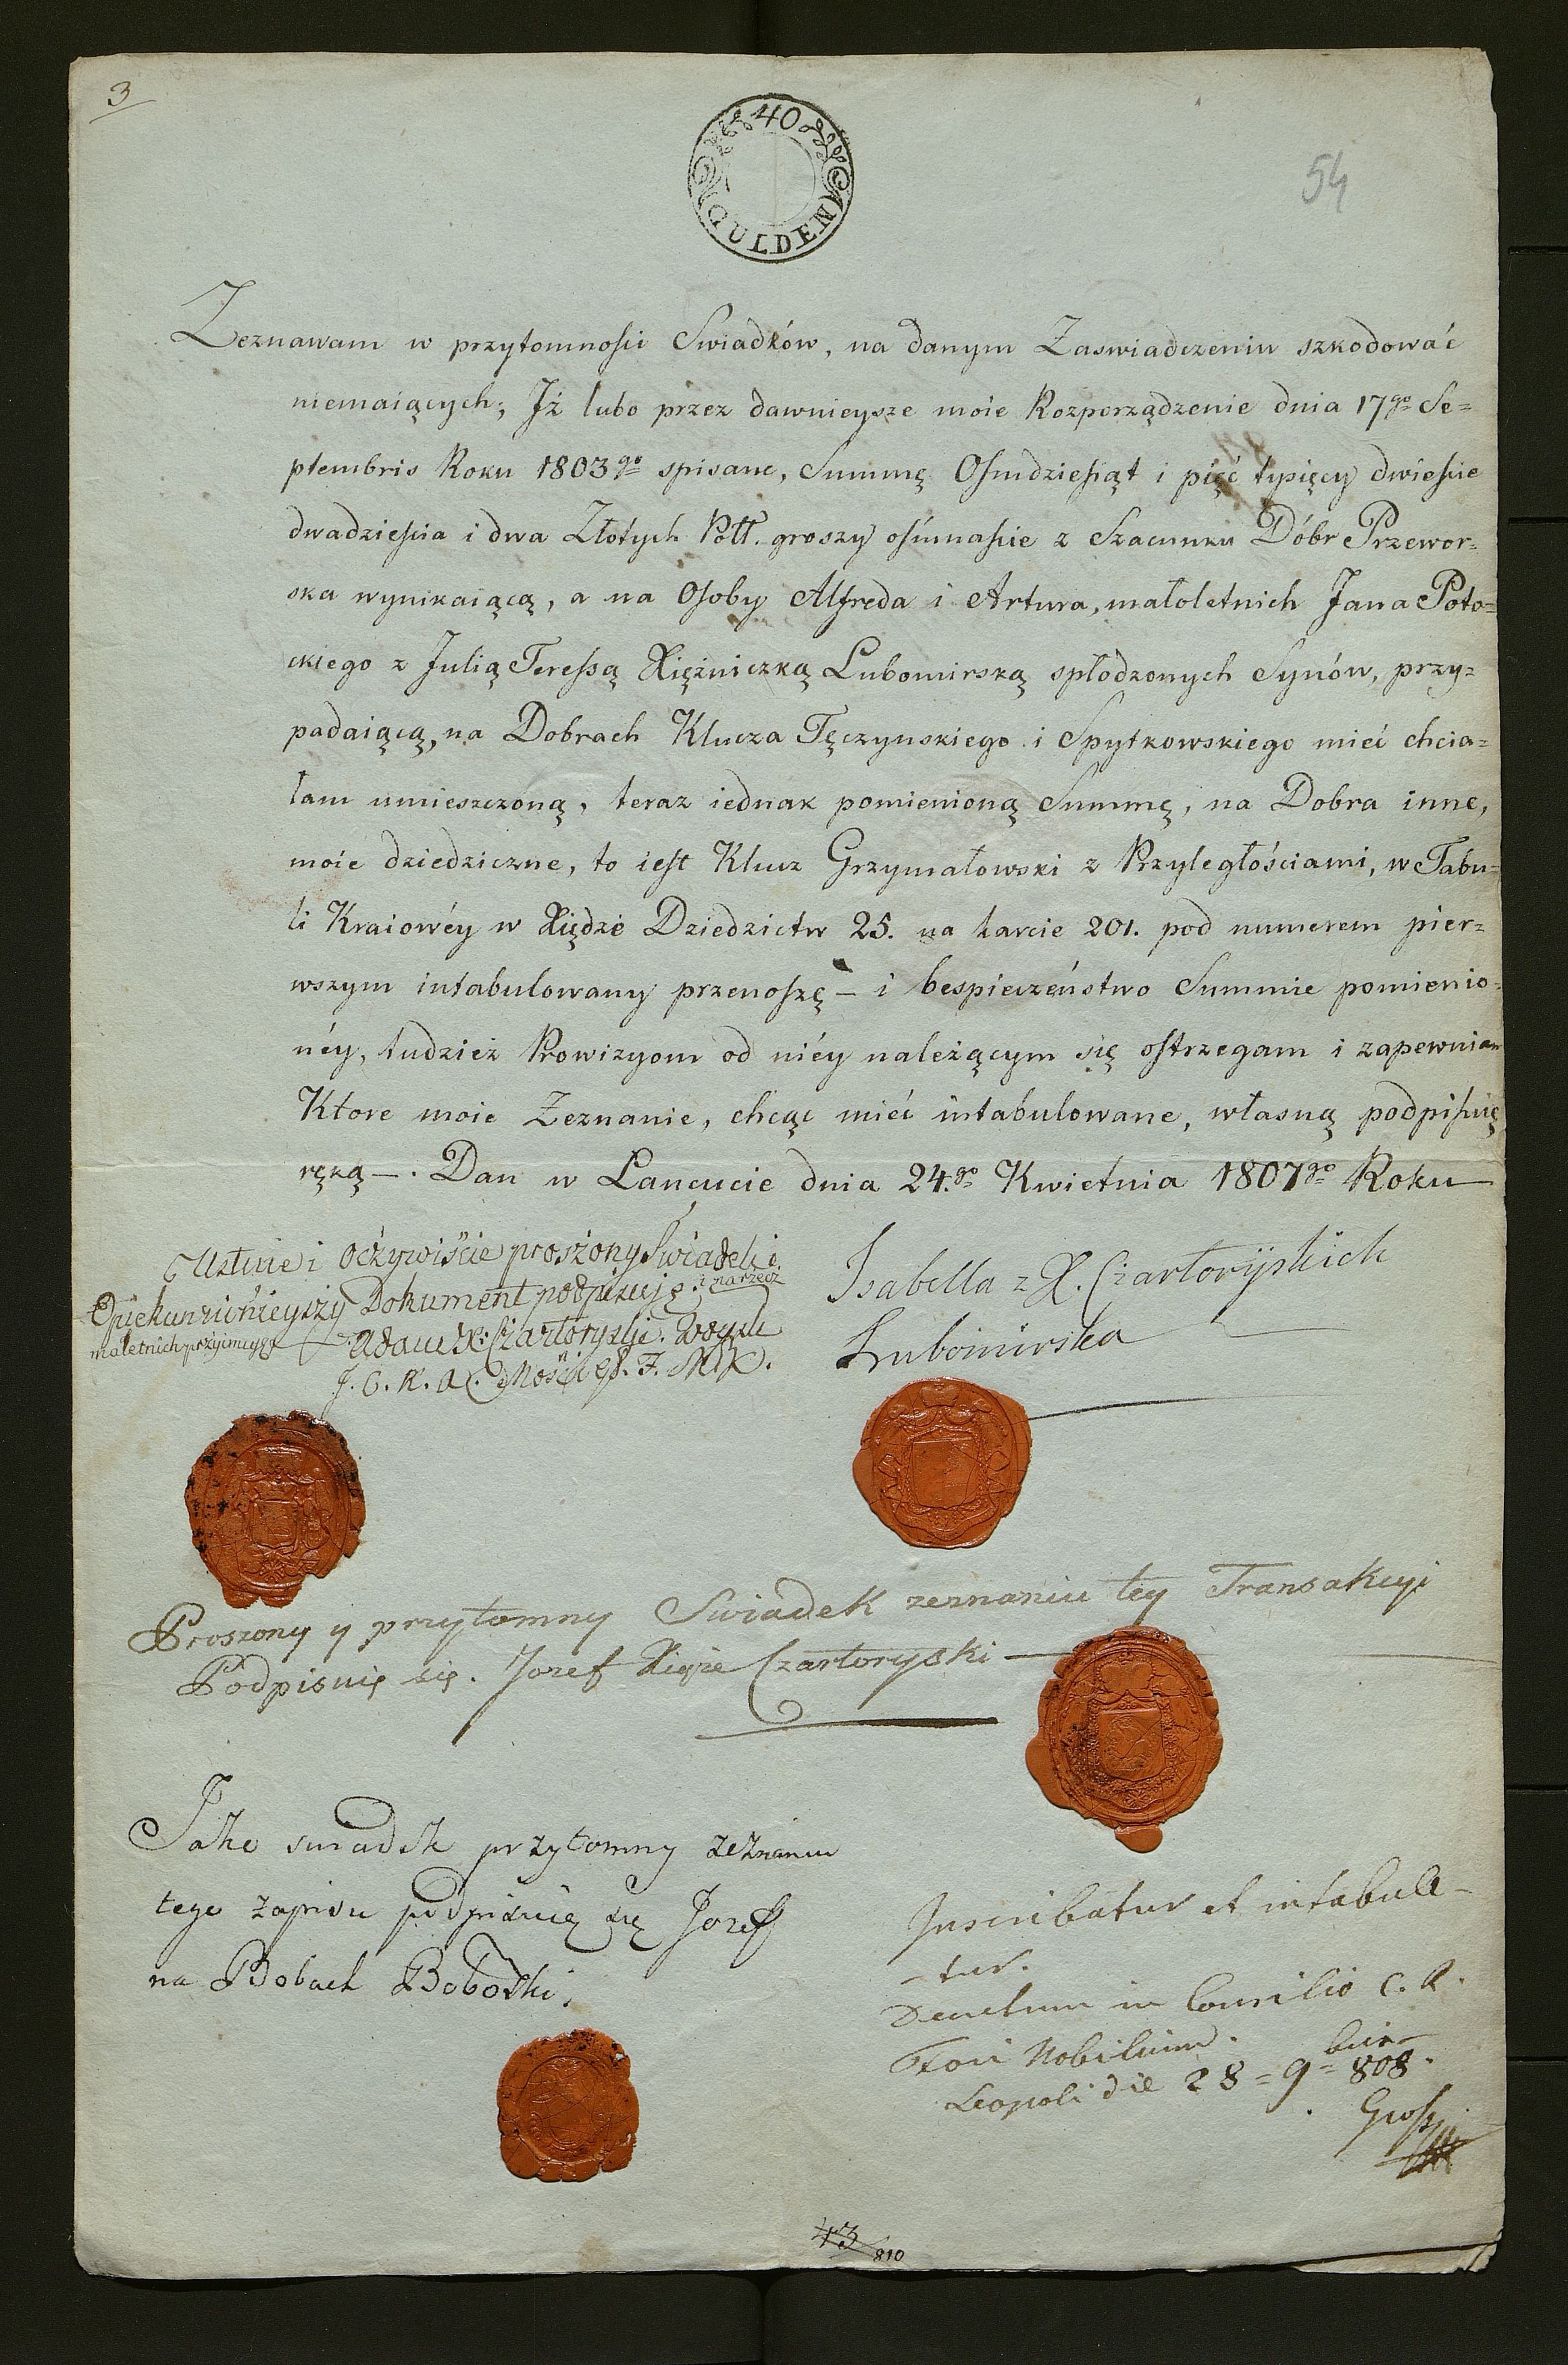 3
40
GULDEN
54
Zeznawam w przytomności Swiadków, na danym Zaswiadczeniu szkodować
niemaiących; Jż lubo przez dawnieysze moie Rozporządzenie dnia 17go Se=
ptembris Roku 1803go spisane, Summę Osmdziesiąt i pięć tysięcy dwieście
dwadzieścia i dwa Złotych Polł. groszy ośmnaście z Szacunku Dóbr Przewor=
ska wynikaiącą, a na Osoby Alfreda i Artura, małoletnich Jana Poto=
ckiego z Julią Teressą Xiężniczką Lubomirską spłodzonych Synów, przy=
padaiącą, na Dobrach Klucza Tęczynskiego i Spytkowskiego mieć chcia=
łam umieszczoną, teraz iednak pomienioną Summę, na Dobra inne,
moie dziedziczne, to iest Klucz Grzymałowski z Przyległościami, w Tabu=
li Kraiowéy w Xiędze Dziedzictw 25. na karcie 201. pod numerem pier=
wszym intabulowany przenoszę – i bespieczeństwo Summie pomienio=
néy, tudzież Prowizyom od niéy należącym się ostrzegam i zapewniam
Ktore moie Zeznanie, chcąc mieć intabulowane, własną podpisuię
ręką –. Dan w Lancucie dnia 24.go Kwietnia 1807go Roku
Ustnie i Oczywiście proszony Swiadek i
Opiekun nińieyszy Dokument podpisuię. i na rzecz
maletnich przyimuyę Adam X: Czartoryski.
J. C. K. A. Mości
Isabella z X. Czartoryskich
Lubomirska
Proszony y przytomny Swiadek zeznaniu tey Transakcyi
Podpisuię się. Jozef Xiąże Czartoryski
Jako swiadek przytomny zeznaniu
tego zapisu podpisuię się Jozef
na Bobach Bobowski.
Inscribatur et intabula-
-tur.
Decretum in Consilio C. R.
Fori Nobilium.
Leopoli die 28 = 9bris 808.
43
810